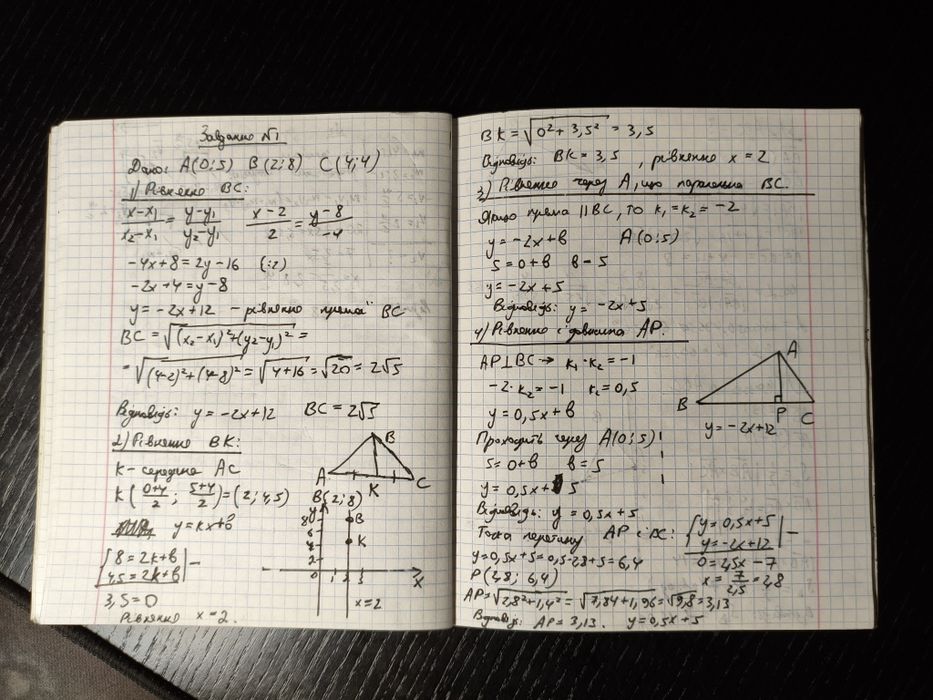 Завдання №1
Дано: A(0;5) B(2;8) C(4;4)
1) Рівняння BC:
x-x₁/x₂-x₁ = y-y₁/y₂-y₁ x-2/2 = y-8/-4
-4x+8=2y-16 (:2)
-2x+4=y-8
y=-2x+12 - рівняння прямої BC
BC=√(x₂-x₁)²+(y₂-y₁)² =
=√(4-2)²+(4-8)² = √4+16 = √20 = 2√5
Відповідь: y=-2x+12 BC=2√5
2) Рівняння BK:
K-середина AC
K(0+4/2; 5+4/2)=(2; 4,5)
y=kx+b
{8=2k+b
4,5=2k+b | -
3,5=0
Рівняння x=2.
B
A K C
B(2;8)
y
8 B
6
4 K
2
0 1 2 3 x
x=2
BK=√0²+3,5² = 3,5
Відповідь: BK=3,5, рівняння x=2
3) Рівняння через A, що паралельна BC.
Якщо пряма ||BC, то k₁=k₂=-2
y=-2x+b A(0;5)
5=0+b b=5
y=-2x+5
Відповідь: y=-2x+5
4) Рівняння і довжина AP.
AP⊥BC→ k₁·k₂=-1
-2·k₂=-1 k₂=0,5
y=0,5x+b
Проходить через A(0;5)
5=0+b b=5
y=0,5x+5
Відповідь: y=0,5x+5
A
B P C
y=-2x+12
Точка перетину AP і BC: {y=0,5x+5
y=-2x+12 | -
0=2,5x-7
x=7/2,5=2,8
y=0,5x+5=0,5·2,8+5=6,4
P(2,8; 6,4)
AP=√2,8²+1,4² = √7,84+1,96 = √9,8 = 3,13
Відповідь: AP=3,13. y=0,5x+5